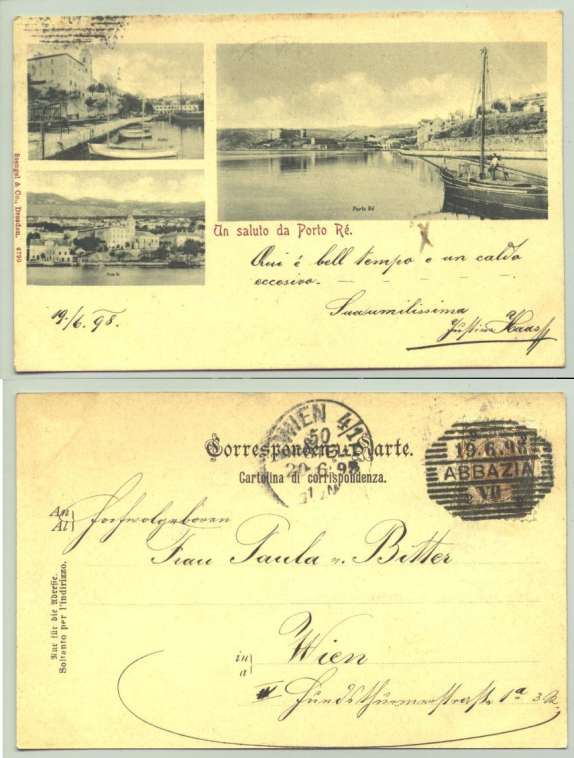 Stengel & Co., Dresden. 4790
Porto Ré
Un saluto da Porto Ré.
Qui è bell tempo e un caldo
eccesivo.
Suaumilissima
Justine Haas
19./6. 98.
Correspondenz-Karte.
Cartolina di corrispondenza.
WIEN 4/1
50
20.6.98
19.6.98
ABBAZIA
An
Al
Hochwolgeboren
Frau Paula v. Bitter
Nur für die Adresse.
Soltanto per l'indirizzo.
in
a
Wien
Hundsthurmerstrasse 1a